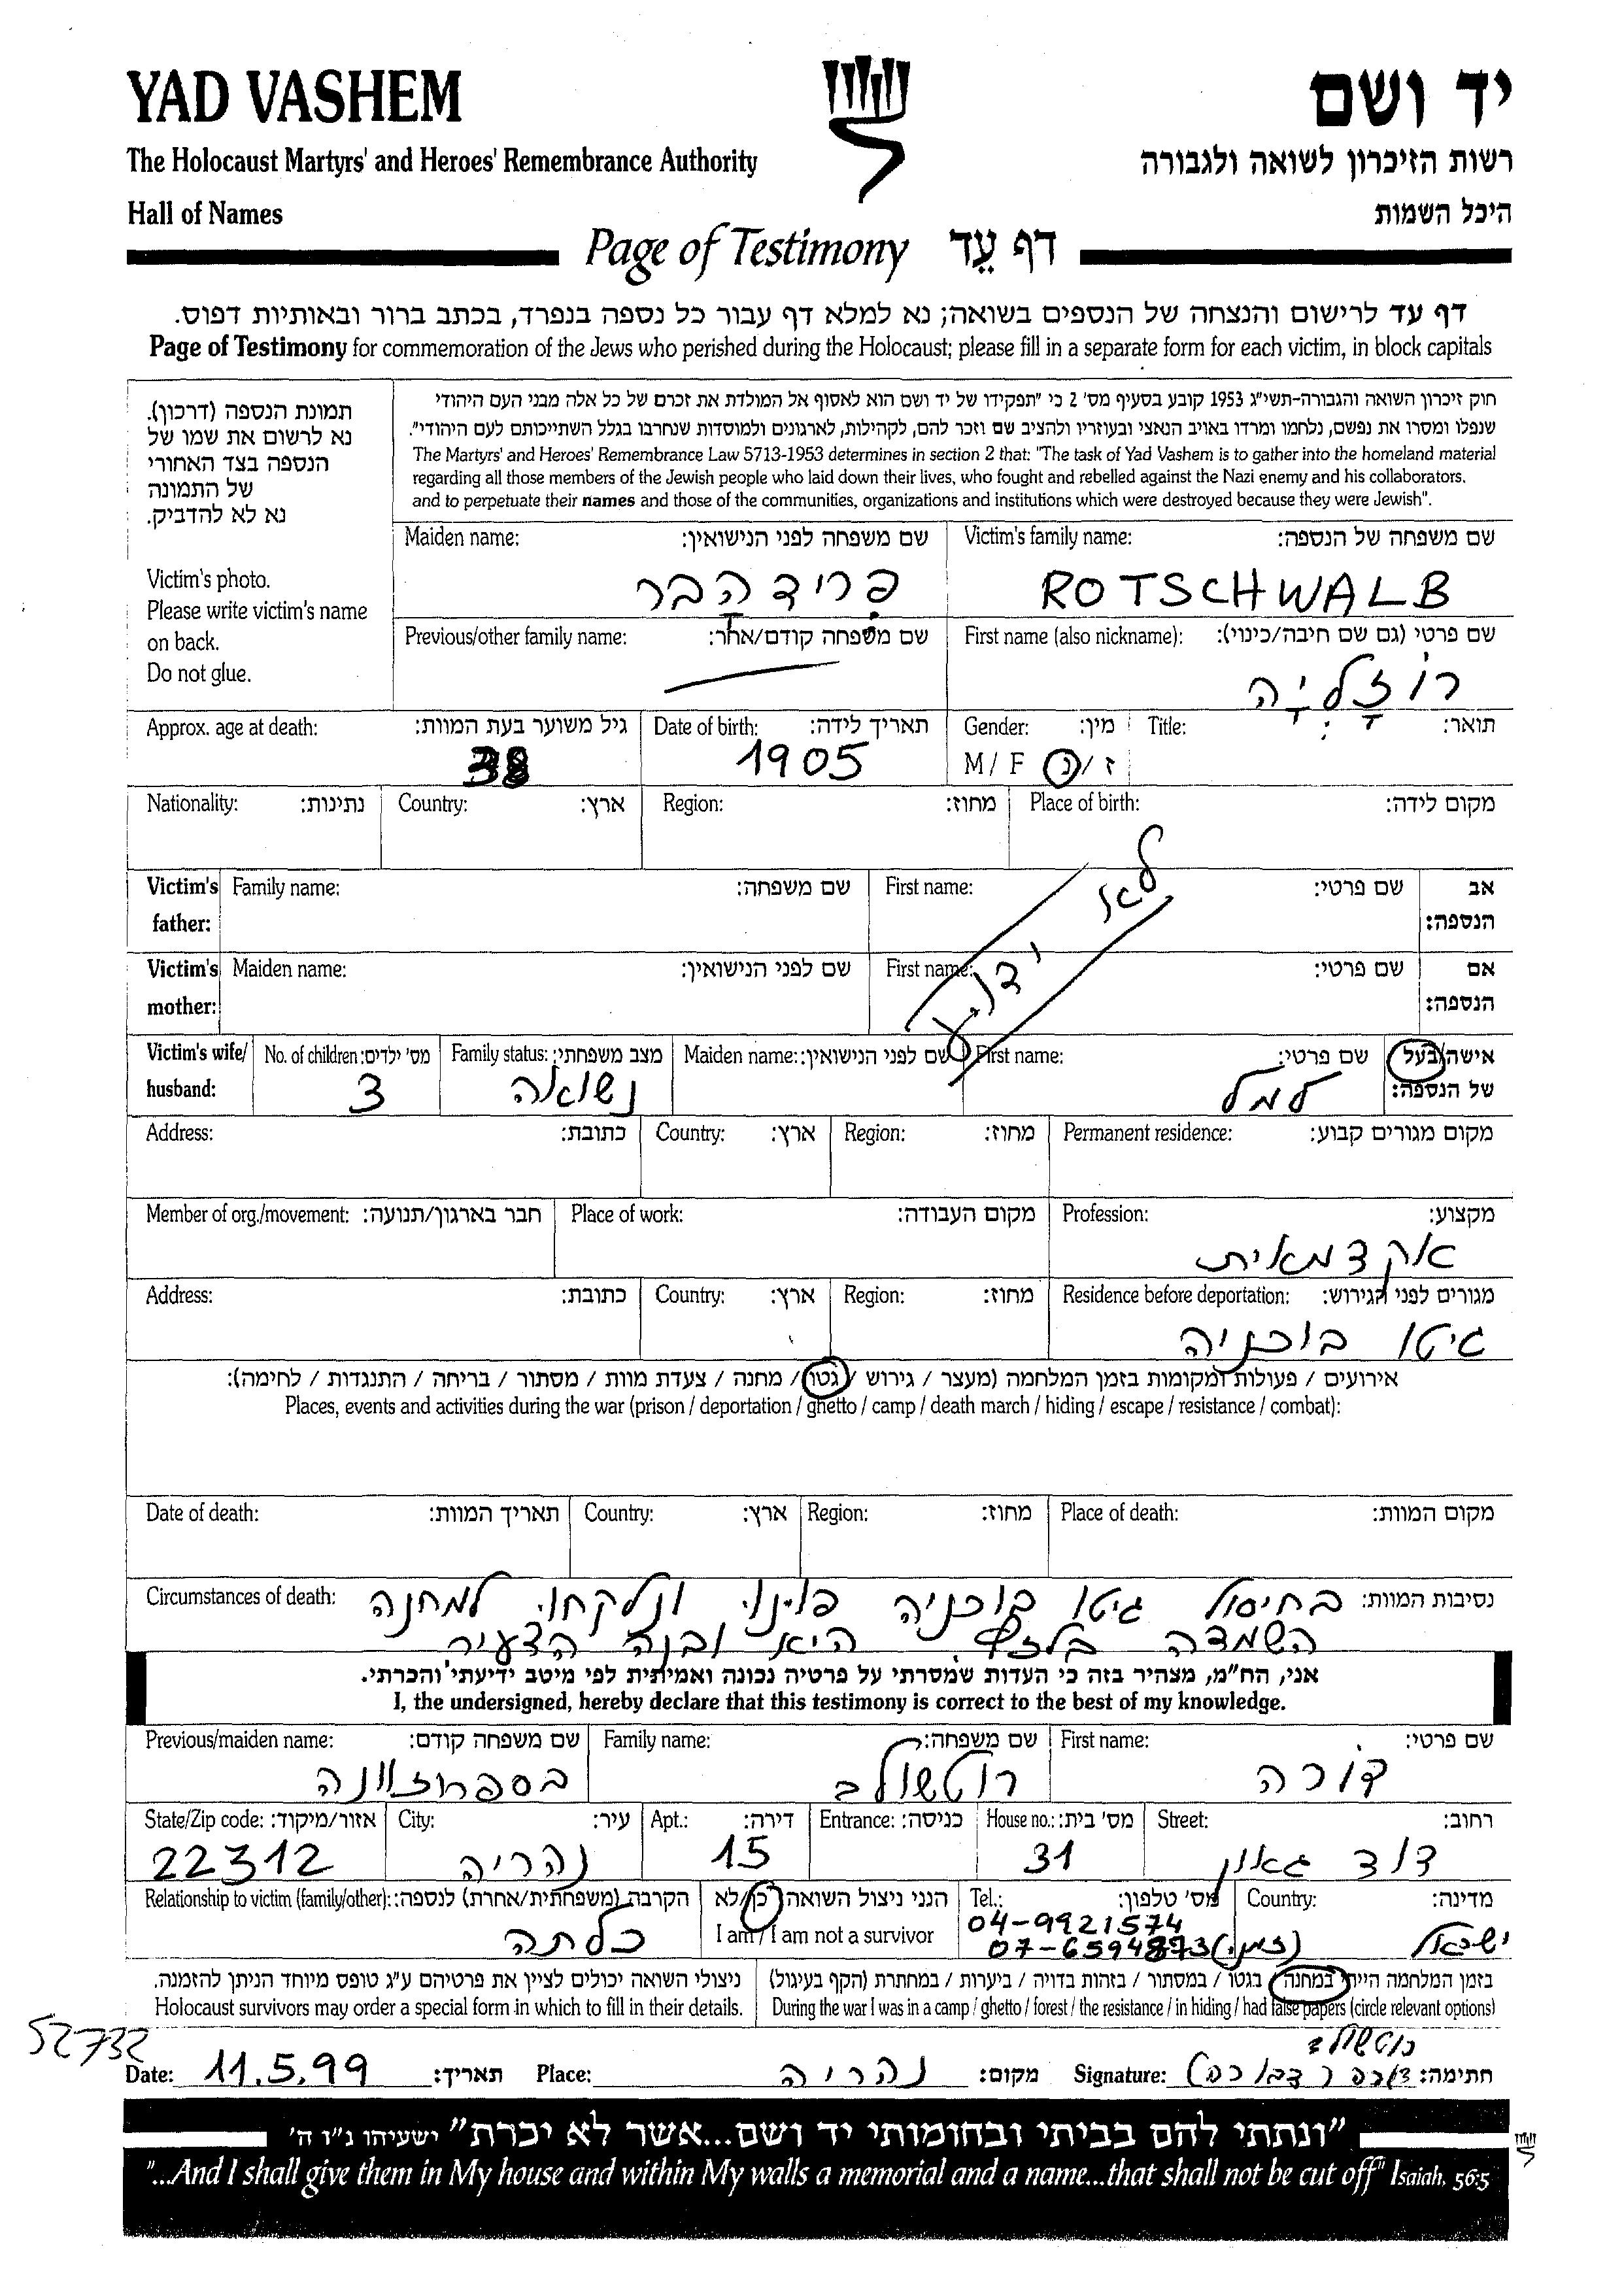 YAD VASHEM
יד ושם
The Holocaust Martyrs' and Heroes' Remembrance Authority
רשות הזיכרון לשואה ולגבורה
Hall of Names
היכל השמות
Page of Testimony דף עֵד
דף עד לרישום והנצחה של הנספים בשואה; נא למלא דף עבור כל נספה בנפרד, בכתב ברור ובאותיות דפוס.
Page of Testimony for commemoration of the Jews who perished during the Holocaust; please fill in a separate form for each victim, in block capitals
תמונת הנספה (דרכון).
נא לרשום את שמו של
הנספה בצד האחורי
של התמונה
נא לא להדביק.
Victim's photo.
Please write victim's name
on back.
Do not glue.
חוק זיכרון השואה והגבורה-תשי"ג 1953 קובע בסעיף מס' 2 כי "תפקידו של יד ושם הוא לאסוף אל המולדת את זכרם של כל אלה מבני העם היהודי
שנפלו ומסרו את נפשם, נלחמו ומרדו באויב הנאצי ובעוזריו ולהציב שם וזכר להם, לקהילות, לארגונים ולמוסדות שנחרבו בגלל השתייכותם לעם היהודי".
The Martyrs' and Heroes' Remembrance Law 5713-1953 determines in section 2 that: "The task of Yad Vashem is to gather into the homeland material
regarding all those members of the Jewish people who laid down their lives, who fought and rebelled against the Nazi enemy and his collaborators,
and to perpetuate their names and those of the communities, organizations and institutions which were destroyed because they were Jewish".
Victim's family name: שם משפחה של הנספה:
ROTSCHWALB
Maiden name: שם משפחה לפני הנישואין:
פרידהבר
First name (also nickname): שם פרטי (גם שם חיבה/כינוי):
רוזליה
Previous/other family name: שם משפחה קודם/אחר:
Title: תואר:
Gender: מין:
M / F ז/נ
Date of birth: תאריך לידה:
1905
Approx. age at death: גיל משוער בעת המוות:
38
Place of birth: מקום לידה:
Region: מחוז:
Country: ארץ:
Nationality: נתינות:
לא ידוע
Victim's father: אב הנספה:
First name: שם פרטי:
Family name: שם משפחה:
Victim's mother: אם הנספה:
First name: שם פרטי:
Maiden name: שם לפני הנישואין:
Victim's wife/ husband: אישה/בעל של הנספה:
First name: שם פרטי:
למל
Maiden name: שם לפני הנישואין:
Family status: מצב משפחתי:
נשואה
No. of children: מס' ילדים:
3
Permanent residence: מקום מגורים קבוע:
Region: מחוז:
Country: ארץ:
Address: כתובת:
Profession: מקצוע:
אקדמאית
Place of work: מקום העבודה:
Member of org./movement: חבר בארגון/תנועה:
Residence before deportation: מגורים לפני הגירוש:
גיטו בוכניה
Region: מחוז:
Country: ארץ:
Address: כתובת:
אירועים / פעולות ומקומות בזמן המלחמה (מעצר / גירוש / גטו / מחנה / צעדת מוות / מסתור / בריחה / התנגדות / לחימה):
Places, events and activities during the war (prison / deportation / ghetto / camp / death march / hiding / escape / resistance / combat):
Place of death: מקום המוות:
Region: מחוז:
Country: ארץ:
Date of death: תאריך המוות:
Circumstances of death: נסיבות המוות:
בחיסול גיטו בוכניה פוינו ונלקחו למחנה
השמדה בלזץ היא ובנה הצעיר
אני, הח"מ, מצהיר בזה כי העדות שמסרתי על פרטיה נכונה ואמיתית לפי מיטב ידיעתי והכרתי.
I, the undersigned, hereby declare that this testimony is correct to the best of my knowledge.
First name: שם פרטי:
דורה
Family name: שם משפחה:
רוטשולב
Previous/maiden name: שם משפחה קודם:
Street: רחוב:
דוד גאון
House no.: מס' בית:
31
Entrance: כניסה:
Apt.: דירה:
15
City: עיר:
נהריה
State/Zip code: אזור/מיקוד:
22312
Country: מדינה:
ישראל
Tel.: מס' טלפון:
04-9921574
07-6594873 (זמני)
הנני ניצול השואה כן/לא
I am / I am not a survivor
Relationship to victim (family/other): הקרבה (משפחתית/אחרת) לנספה:
כלתה
בזמן המלחמה הייתי במחנה / בגטו / במסתור / בזהות בדויה / ביערות / במחתרת (הקף בעיגול)
During the war I was in a camp / ghetto / forest / the resistance / in hiding / had false papers (circle relevant options)
ניצולי השואה יכולים לציין את פרטיהם ע"ג טופס מיוחד הניתן להזמנה.
Holocaust survivors may order a special form in which to fill in their details.
52732
רוטשולב
Date: 11.5.99 תאריך: Place: נהריה מקום: Signature: חתימה:
"ונתתי להם בביתי ובחומותי יד ושם...אשר לא יכרת" ישעיהו נ"ו ה'
"...And I shall give them in My house and within My walls a memorial and a name...that shall not be cut off" Isaiah, 56:5